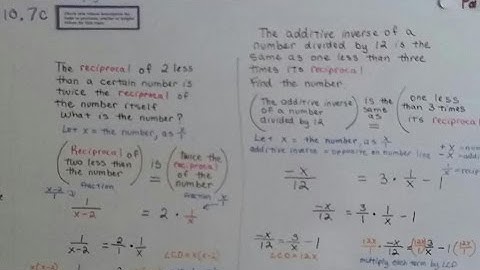 10.7C
The reciprocal of 2 less
than a certain number is
twice the reciprocal of
the number itself
What is the number?
Let x = the number, as x/1
(Reciprocal of
two less than
the number) is = (twice the
reciprocal
of
the number)
x-2/1 fraction
fraction x/1
1/x-2 = 2 · 1/x
1/x-2 = 2/1 · 1/x
LCD = x(x-2)
The additive inverse of a
number divided by 12 is the
same as one less than three
times its reciprocal
Find the number
(The additive inverse
of a number
divided by 12) is the
same
as
= (one less
than 3 times
its reciprocal
Let x = the number, as x/1
additive inverse = opposite on number line
+x
-x
-x/12 = 3 · 1/x - 1
-x/12 = 3/1 · 1/x - 1
-x/12 = 3/x - 1
LCD = 12x
12x/1 · -x/12 = (12x/1) 3/x - 1 (12x/1)
multiply each term by LCD